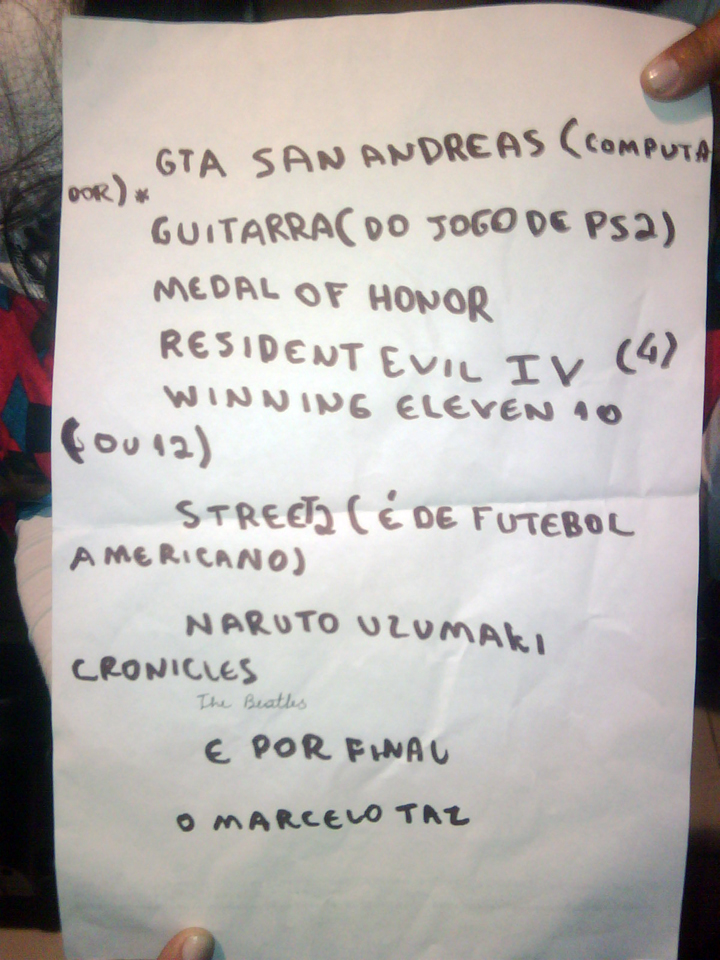 GTA SAN ANDREAS (COMPUTA
DOR) *
GUITARRA (DO JOGO DE PS2)
MEDAL OF HONOR
RESIDENT EVIL IV (4)
WINNING ELEVEN 10
(OU 12)
STREET2 (É DE FUTEBOL
AMERICANO)
NARUTO UZUMAKI
CRONICLES
The Beatles
E POR FINAL
O MARCELO TAZ